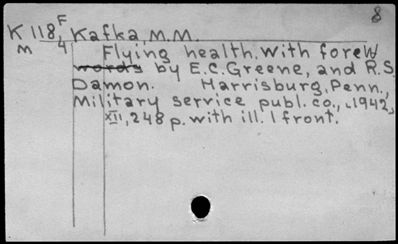 8
K 118, F Kafka, M.M.
M 4 Flying health. With forew
words by E.C. Greene, and R.S.
Damon. Harrisburg, Penn.,
Military service publ. co., 1942,
XII, 248 p. with ill. 1 front.